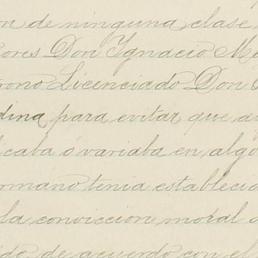 on de ninguna clase
ores Don Ignacio Me
rono Licenciado Don
dina para evitar que a
caba ó variaba en algo
ermano tenia establecid
la conviccion moral d
ido de acuerdo con el